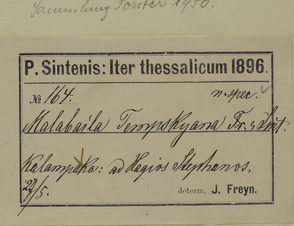 Sammlung Forster 1930.
P. Sintenis: Iter thessalicum 1896.
№ 164. n. spec.
Malabaila Tempskyana Fr. & Sint.
Kalampaka: ad Hagios Stephanos.
27/5. determ. J. Freyn.